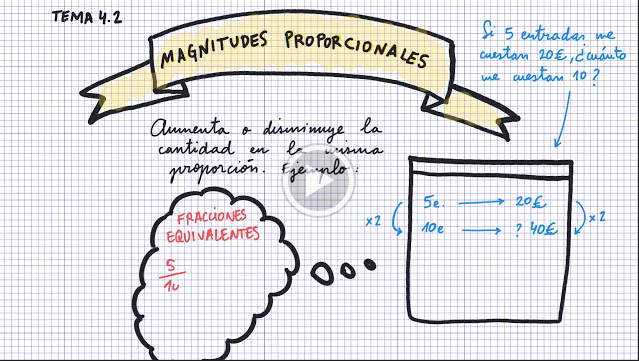 TEMA 4.2
MAGNITUDES PROPORCIONALES
Si 5 entradas me
cuestan 20£, ¿cuánto
me cuestan 10?
Aumenta o disminuye la
cantidad en la misma
proporción. Ejemplo:
5e. → 20£
x2
10e → ? 40£
x2
FRACCIONES
EQUIVALENTES
5
10